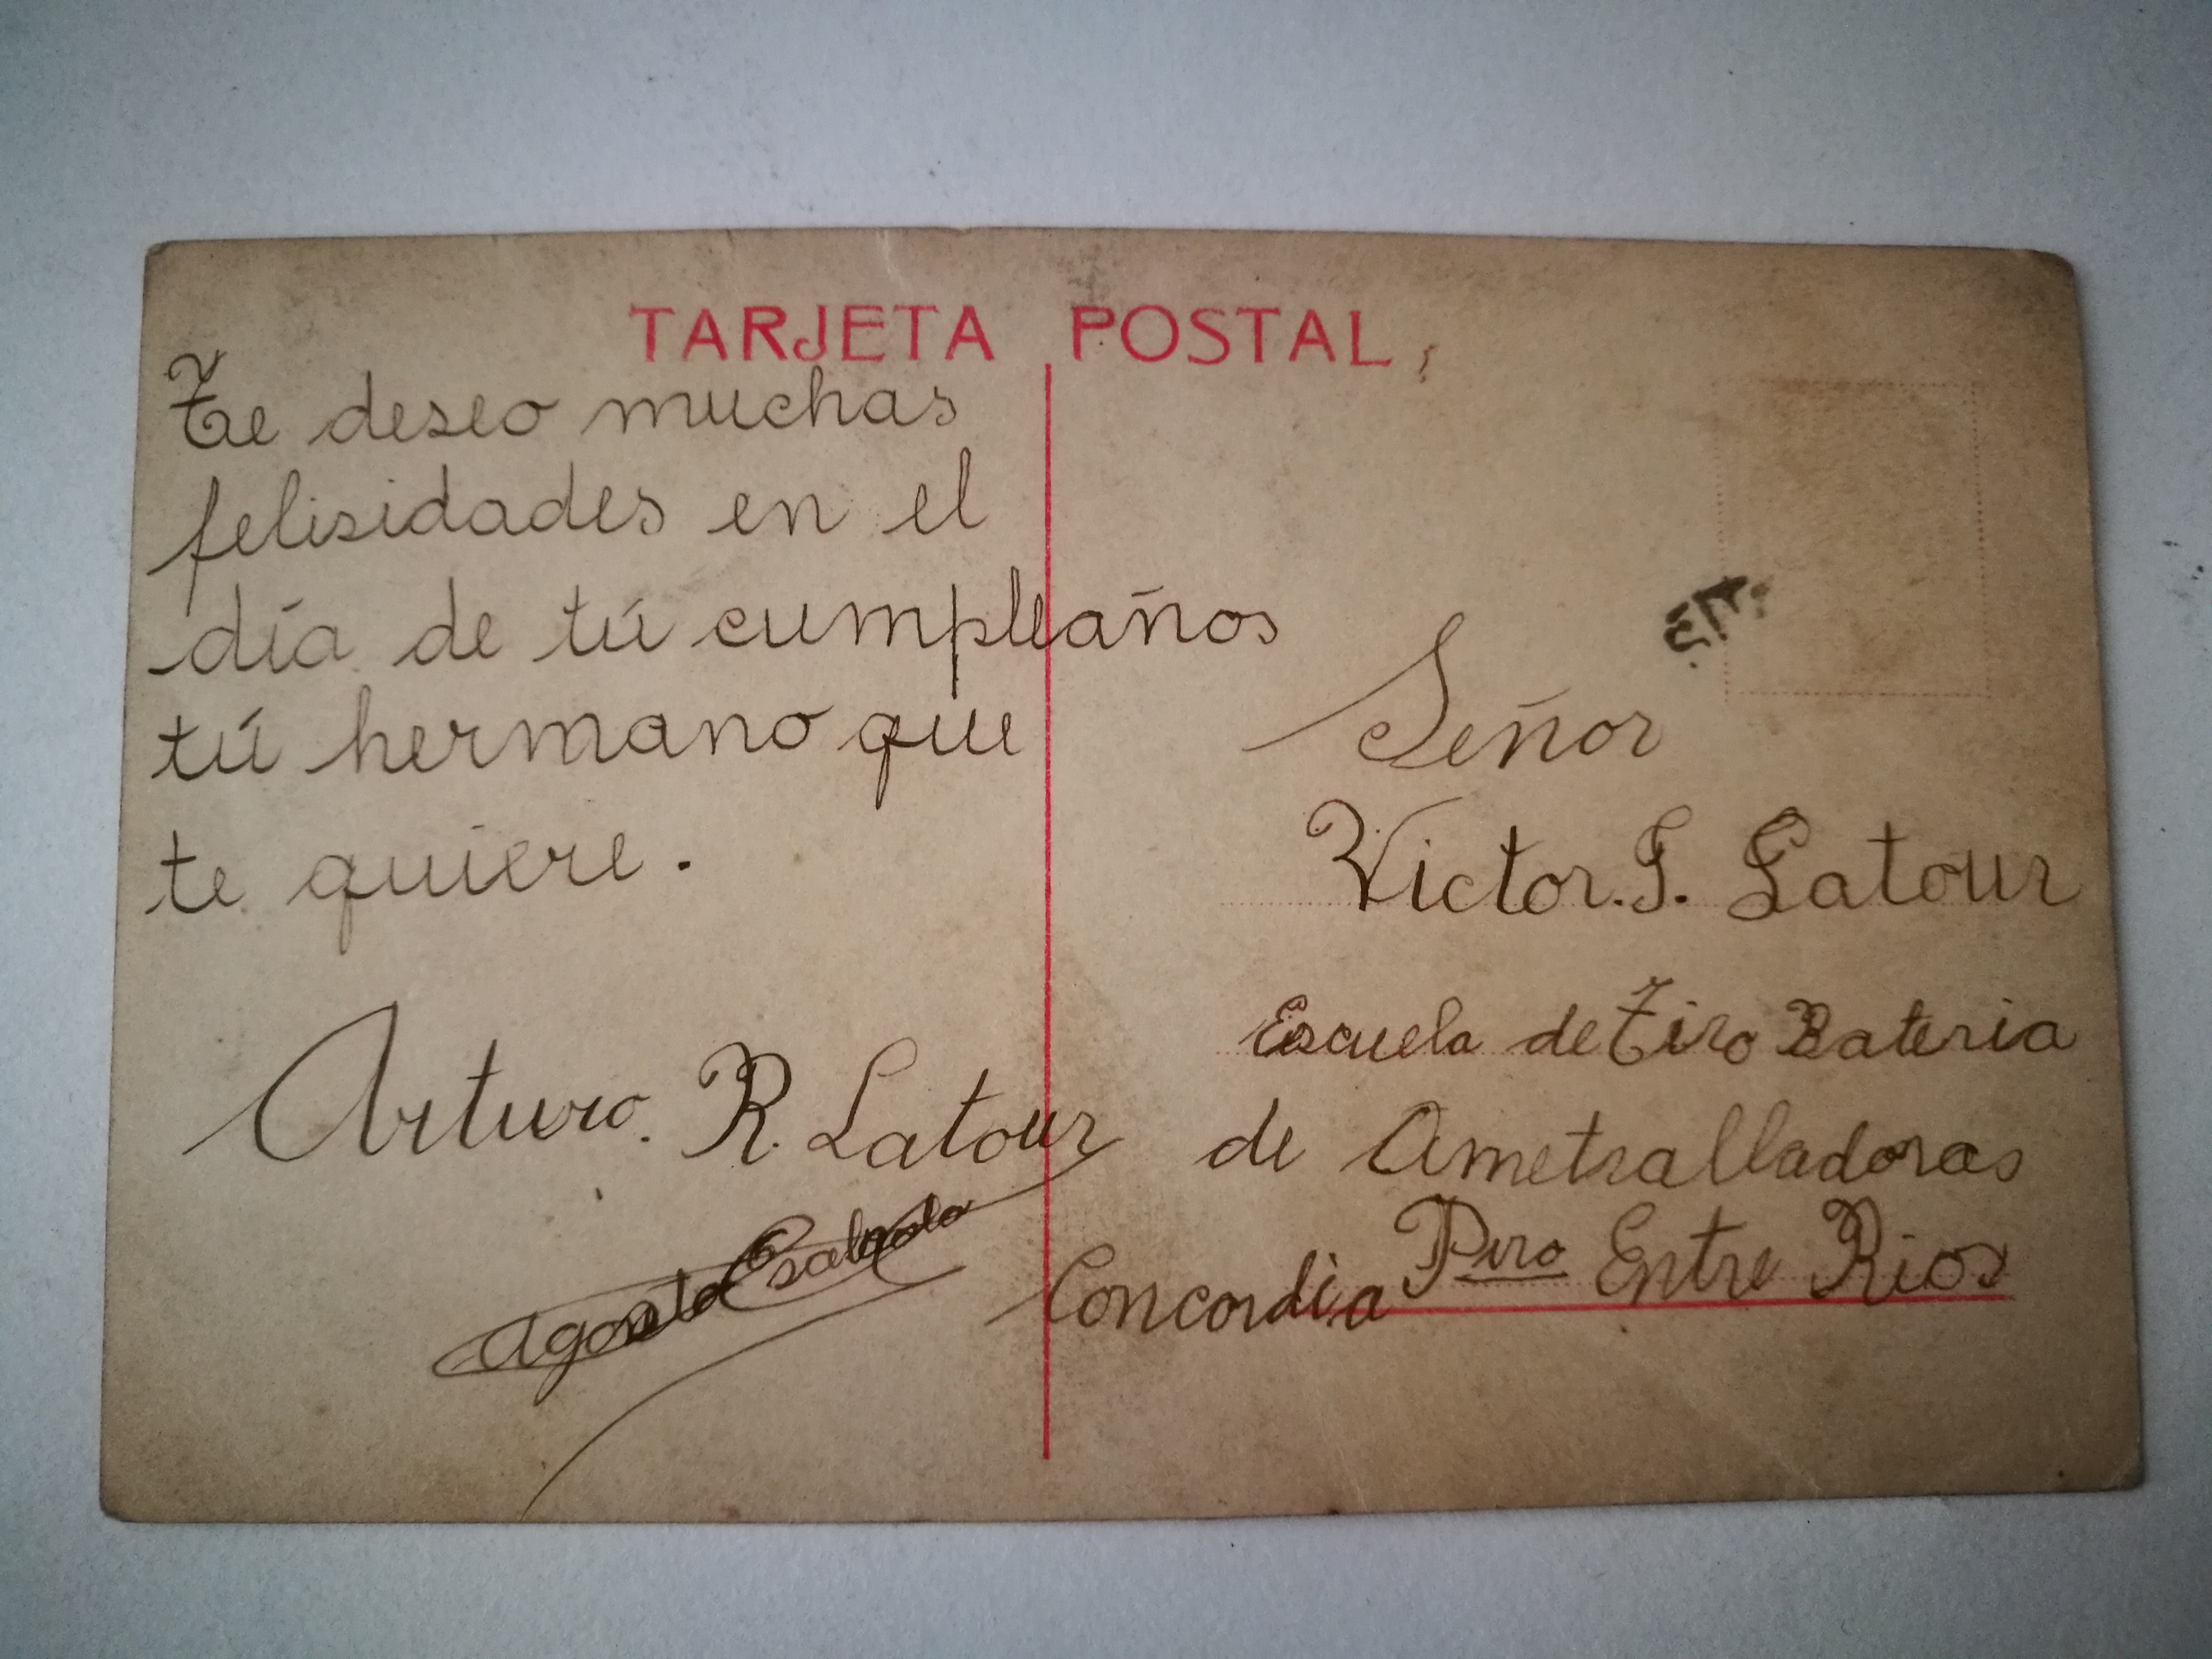 TARJETA POSTAL
Te deseo muchas
felisidades en el
día de tú cumpleaños
tú hermano que
te quiere.
Arturo. R. Latour
Señor
Victor. . Latour
Escuela de Tiro Bateria
de Ametralladoras
Concordia Pvro Entre Rios